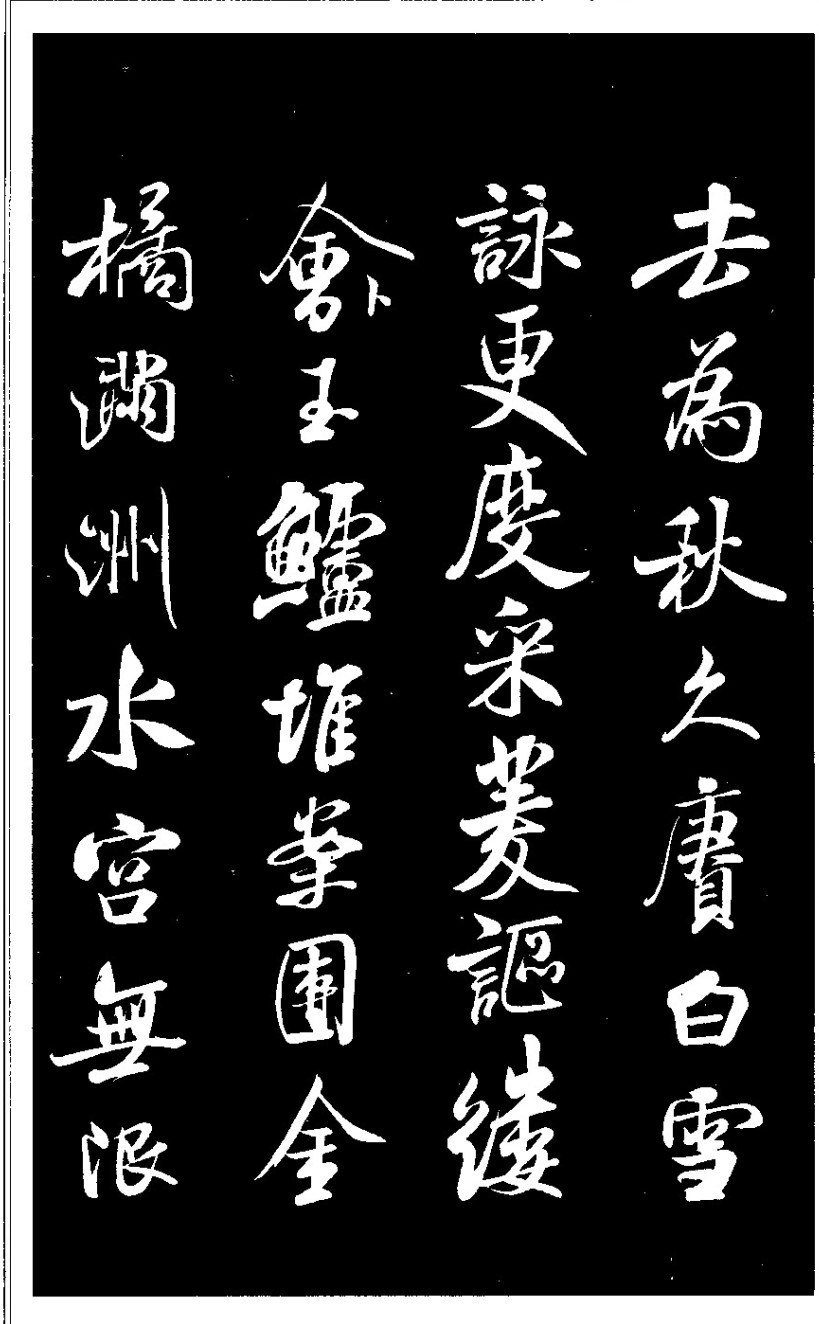 去為秋久賡白雪
詠更度采菱謳縷
會玉鱸堆案團金
橘滿洲水宮無限